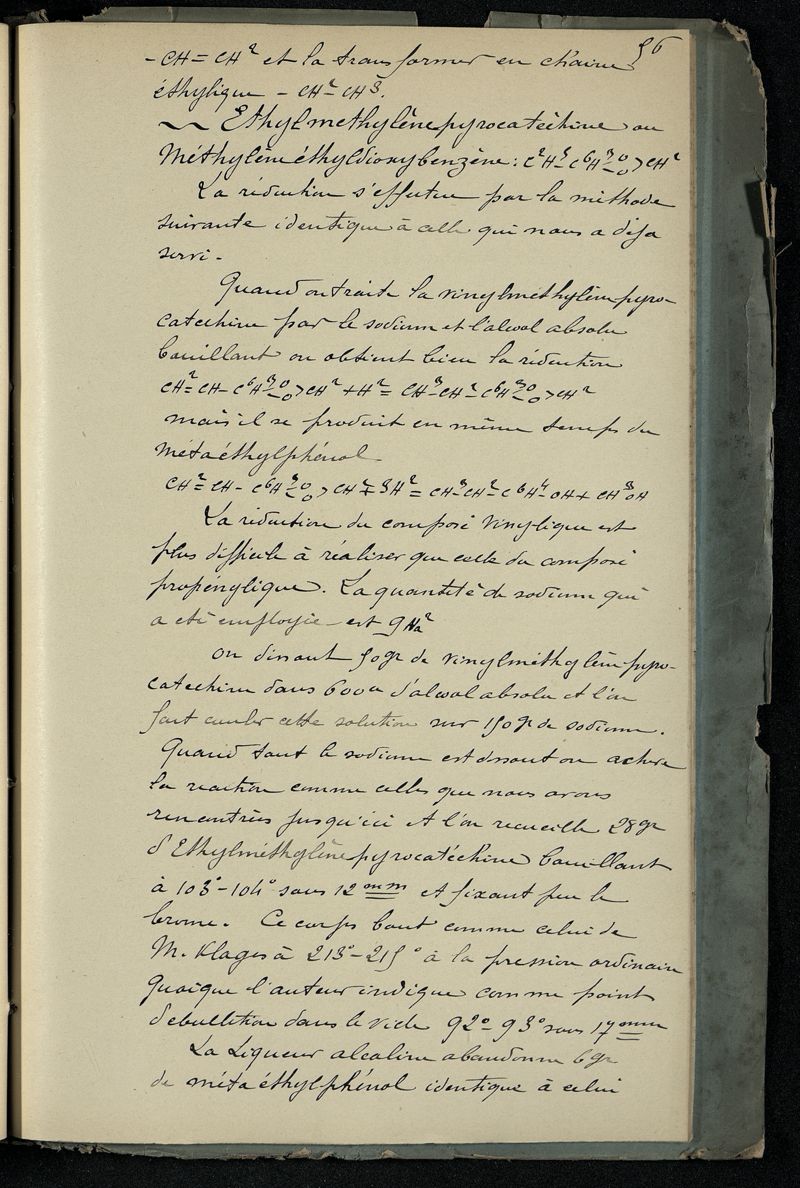 56
- CH = CH² et la transformer en chaine
éthylique - CH² - CH³.
Ethylmethylènepyrocatéchine ou
Méthylèneéthyldioxybenzène : C²H⁵ - C⁶H³ - O - O > CH²
La réduction s'effectue par la méthode
suivante identique à celle qui nous a déja
servi -
Quand on traite la vinylméthylènepyro-
catechine par le sodium et l'alcool absolu
bouillant on obtient bien la réduction
CH² = CH - C⁶H³ - O - O > CH² + H² = CH³ - CH² - C⁶H³ - O - O > CH²
mais il se produit en même temps du
métaéthylphénol
CH² = CH - C⁶H³ - O - O > CH² + 3H² = CH³ - CH² - C⁶H⁴ - OH + CH³OH
La réduction du composé vinylique est
plus difficile à réaliser que celle du composé
propénylique. La quantité de sodium qui
a été employée - est 9 Na²
on dissout 50gr de vinylméthylènepyro-
catechine dans 600cc d'alcool absolu et l'on
fait couler cette solution sur 150gr de sodium.
Quand tout le sodium est dissout on achève
la réaction comme celles que nous avons
rencontrées jusqu'ici et l'on recueille 28gr
d'Ethylméthylènepyrocatéchine bouillant
à 103° - 104° sous 12 mm et fixant peu le
brome. Ce corps bout comme celui de
M. Klages à 213° - 215° à la pression ordinaire
quoique l'auteur indique comme point
d'ebullition dans le vide 92° - 93° sous 17 mm
La Liqueur alcaline abandonne 6gr
de métaéthylphénol identique à celui